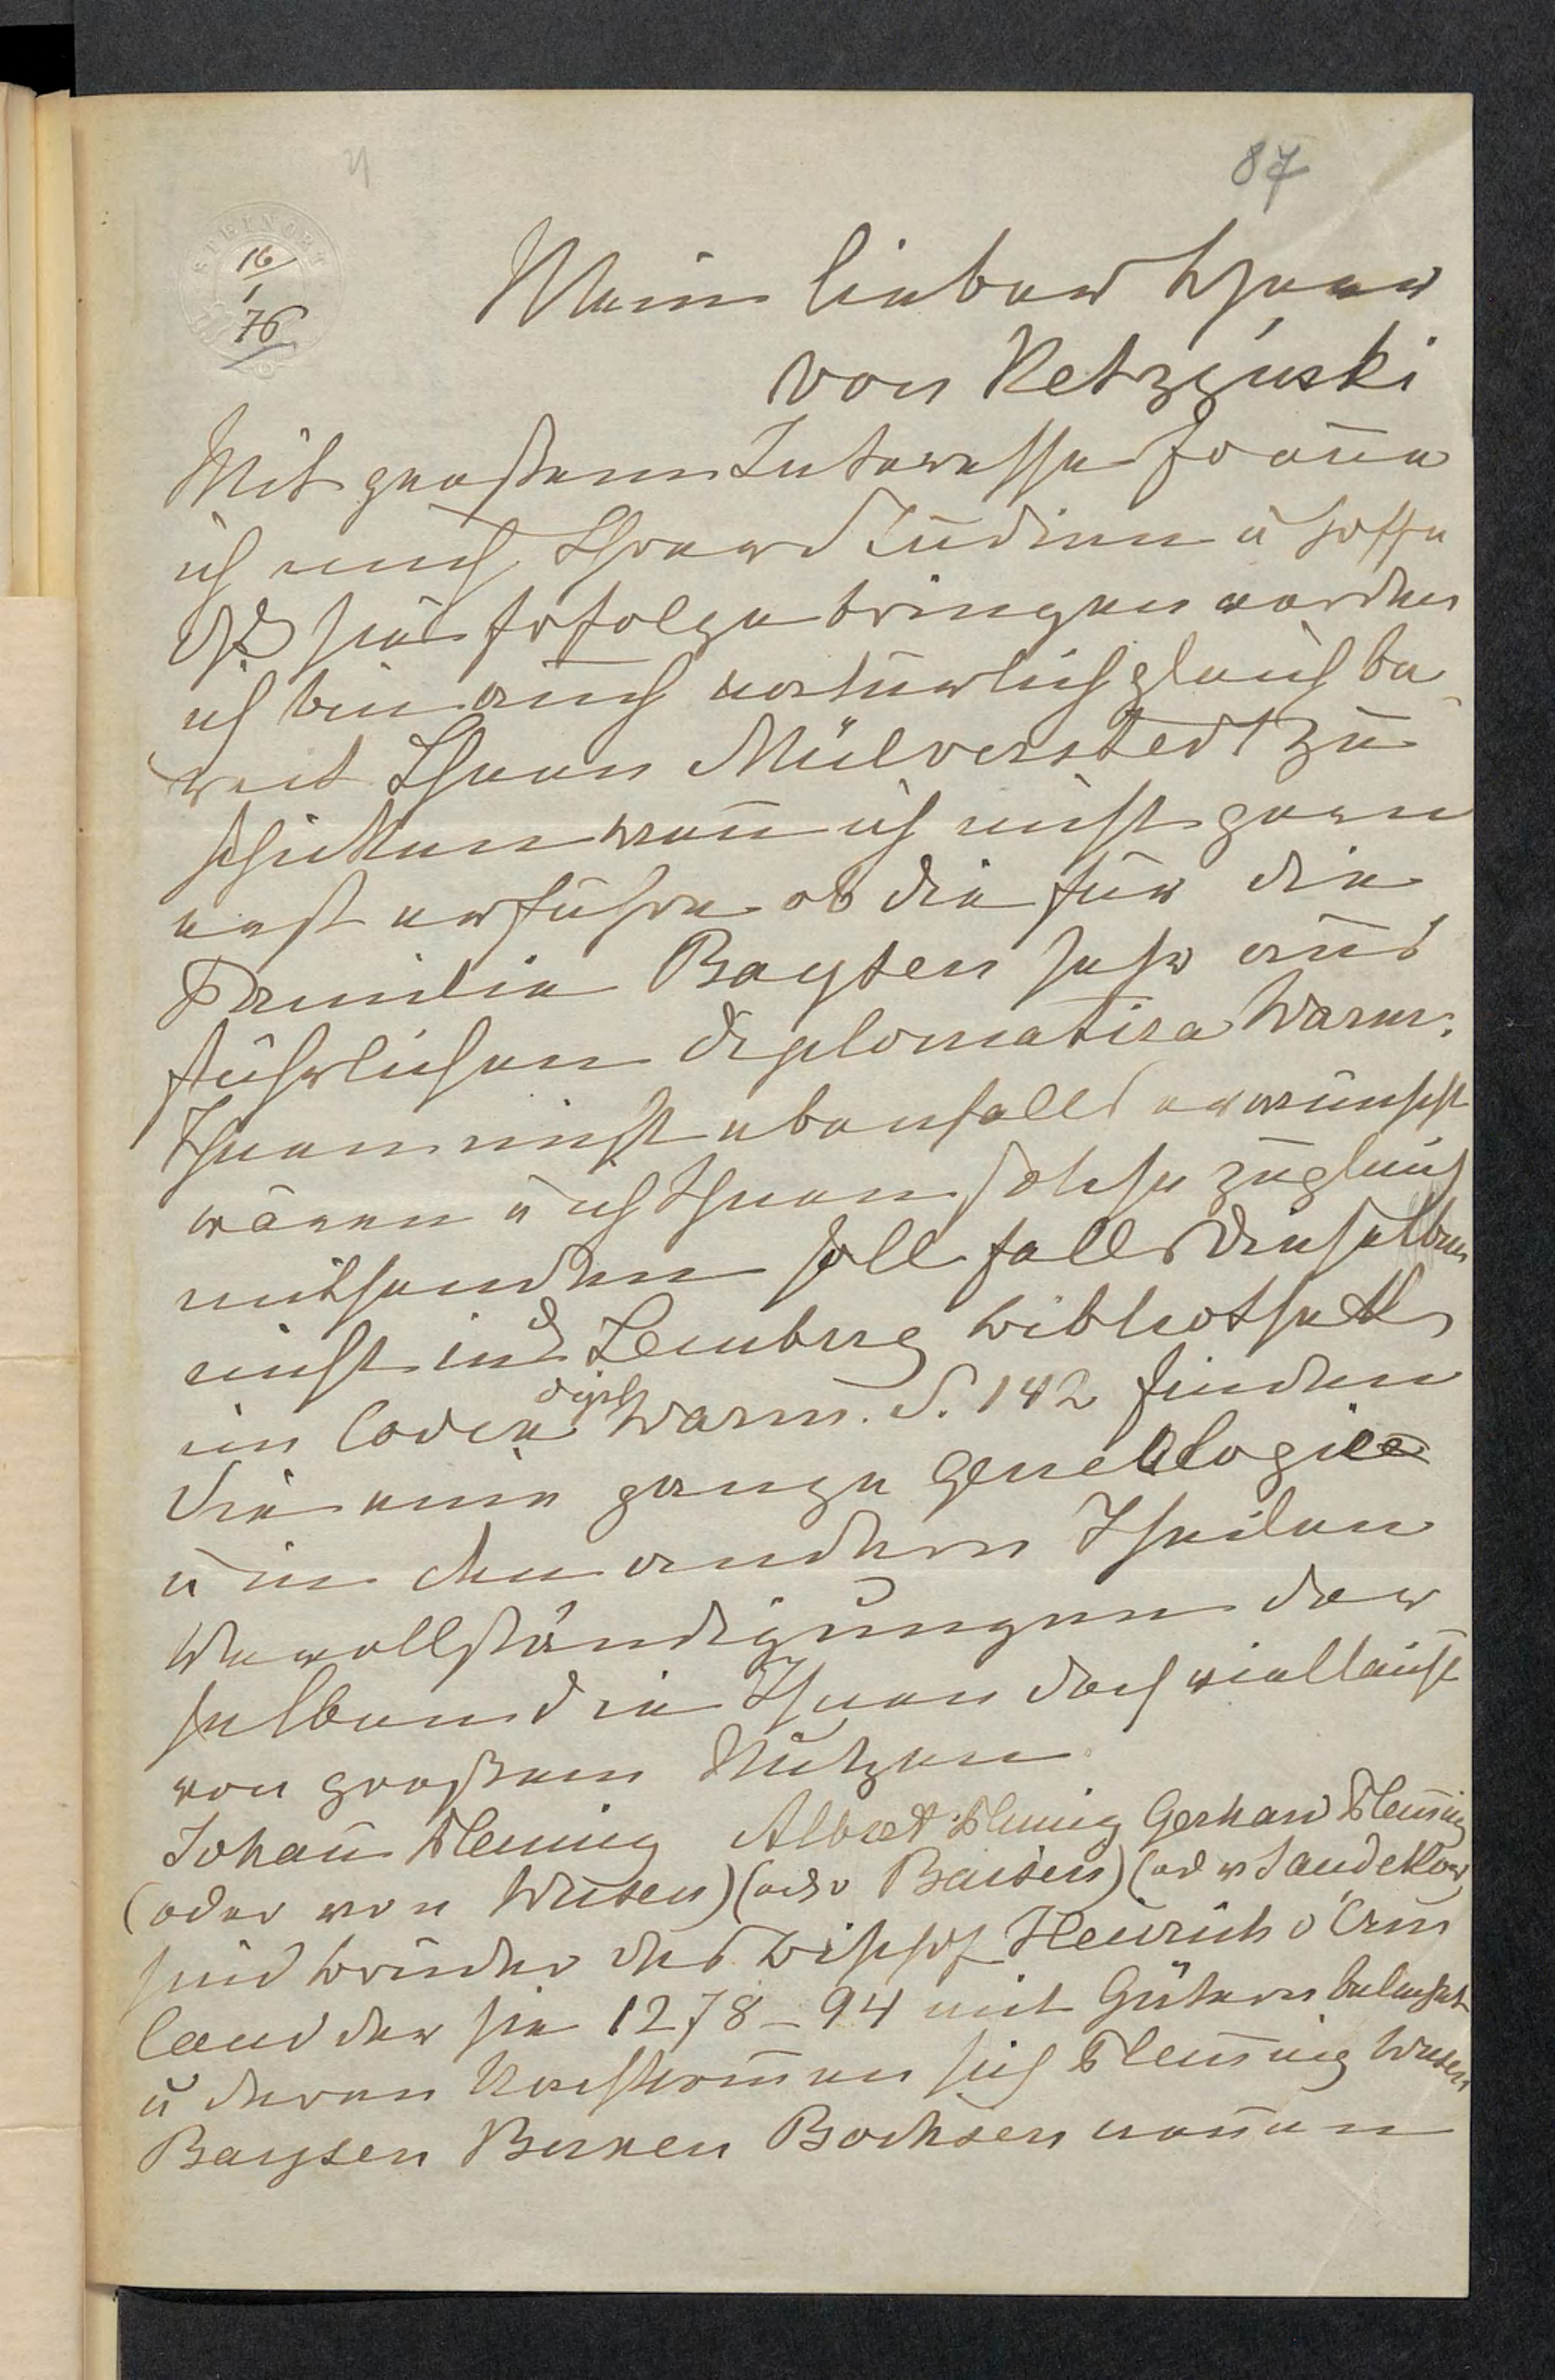 87
STEINORT
16/1 76
Mein lieber Herr
von Ketrzyński
Mit großem Interesse freue
ich mich Ihrer Studien u hoffe
dß sie Erfolge bringen werden
ich bin auch natürlich gleich be-
reit Ihnen Mülverstedt zu
schicken wenn ich nicht gern
erst erführe ob die für die
Familie Baysen sehr aus
führlichen diplomatica Warm:
Ihnen nicht ebenfalls erwünscht
wären u ich Ihnen solche zugleich
mitsenden soll falls dieselben
nicht in d Lemberg Bibliothek
im Codex dipl Warm. S. 142 finden
Sie eine ganze Genealogie
u in den andern Theilen
Vervollständigungen der
selben die Ihnen doch vielleicht
von großem Nutzen
Johan̄ Fleming Albert Fleming Gerhard Flem̄ing
(oder von Wusen) (oder Baisen) (od v
sind Brüder des Bischof Heinrich v Erm
land der sie 1278–94 mit Gütern belehnt
u deren Nachkom̄en sich Flem̄ing Wusen
Baysen Bochsen nen̄en